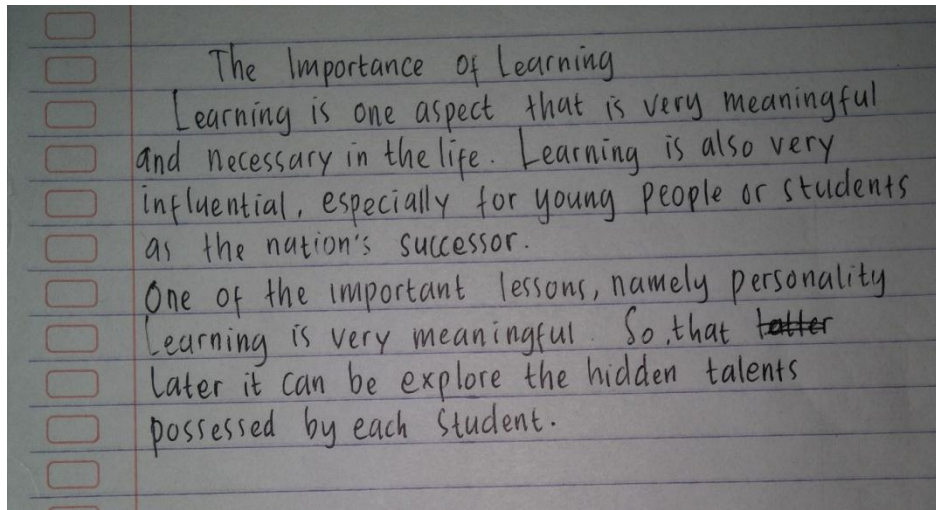 The Importance of Learning
Learning is one aspect that is very meaningful
and necessary in the life. Learning is also very
influential, especially for young people or students
as the nation's successor.
One of the important lessons, namely personality
Learning is very meaningful. So, that latter
Later it can be explore the hidden talents
possessed by each student.